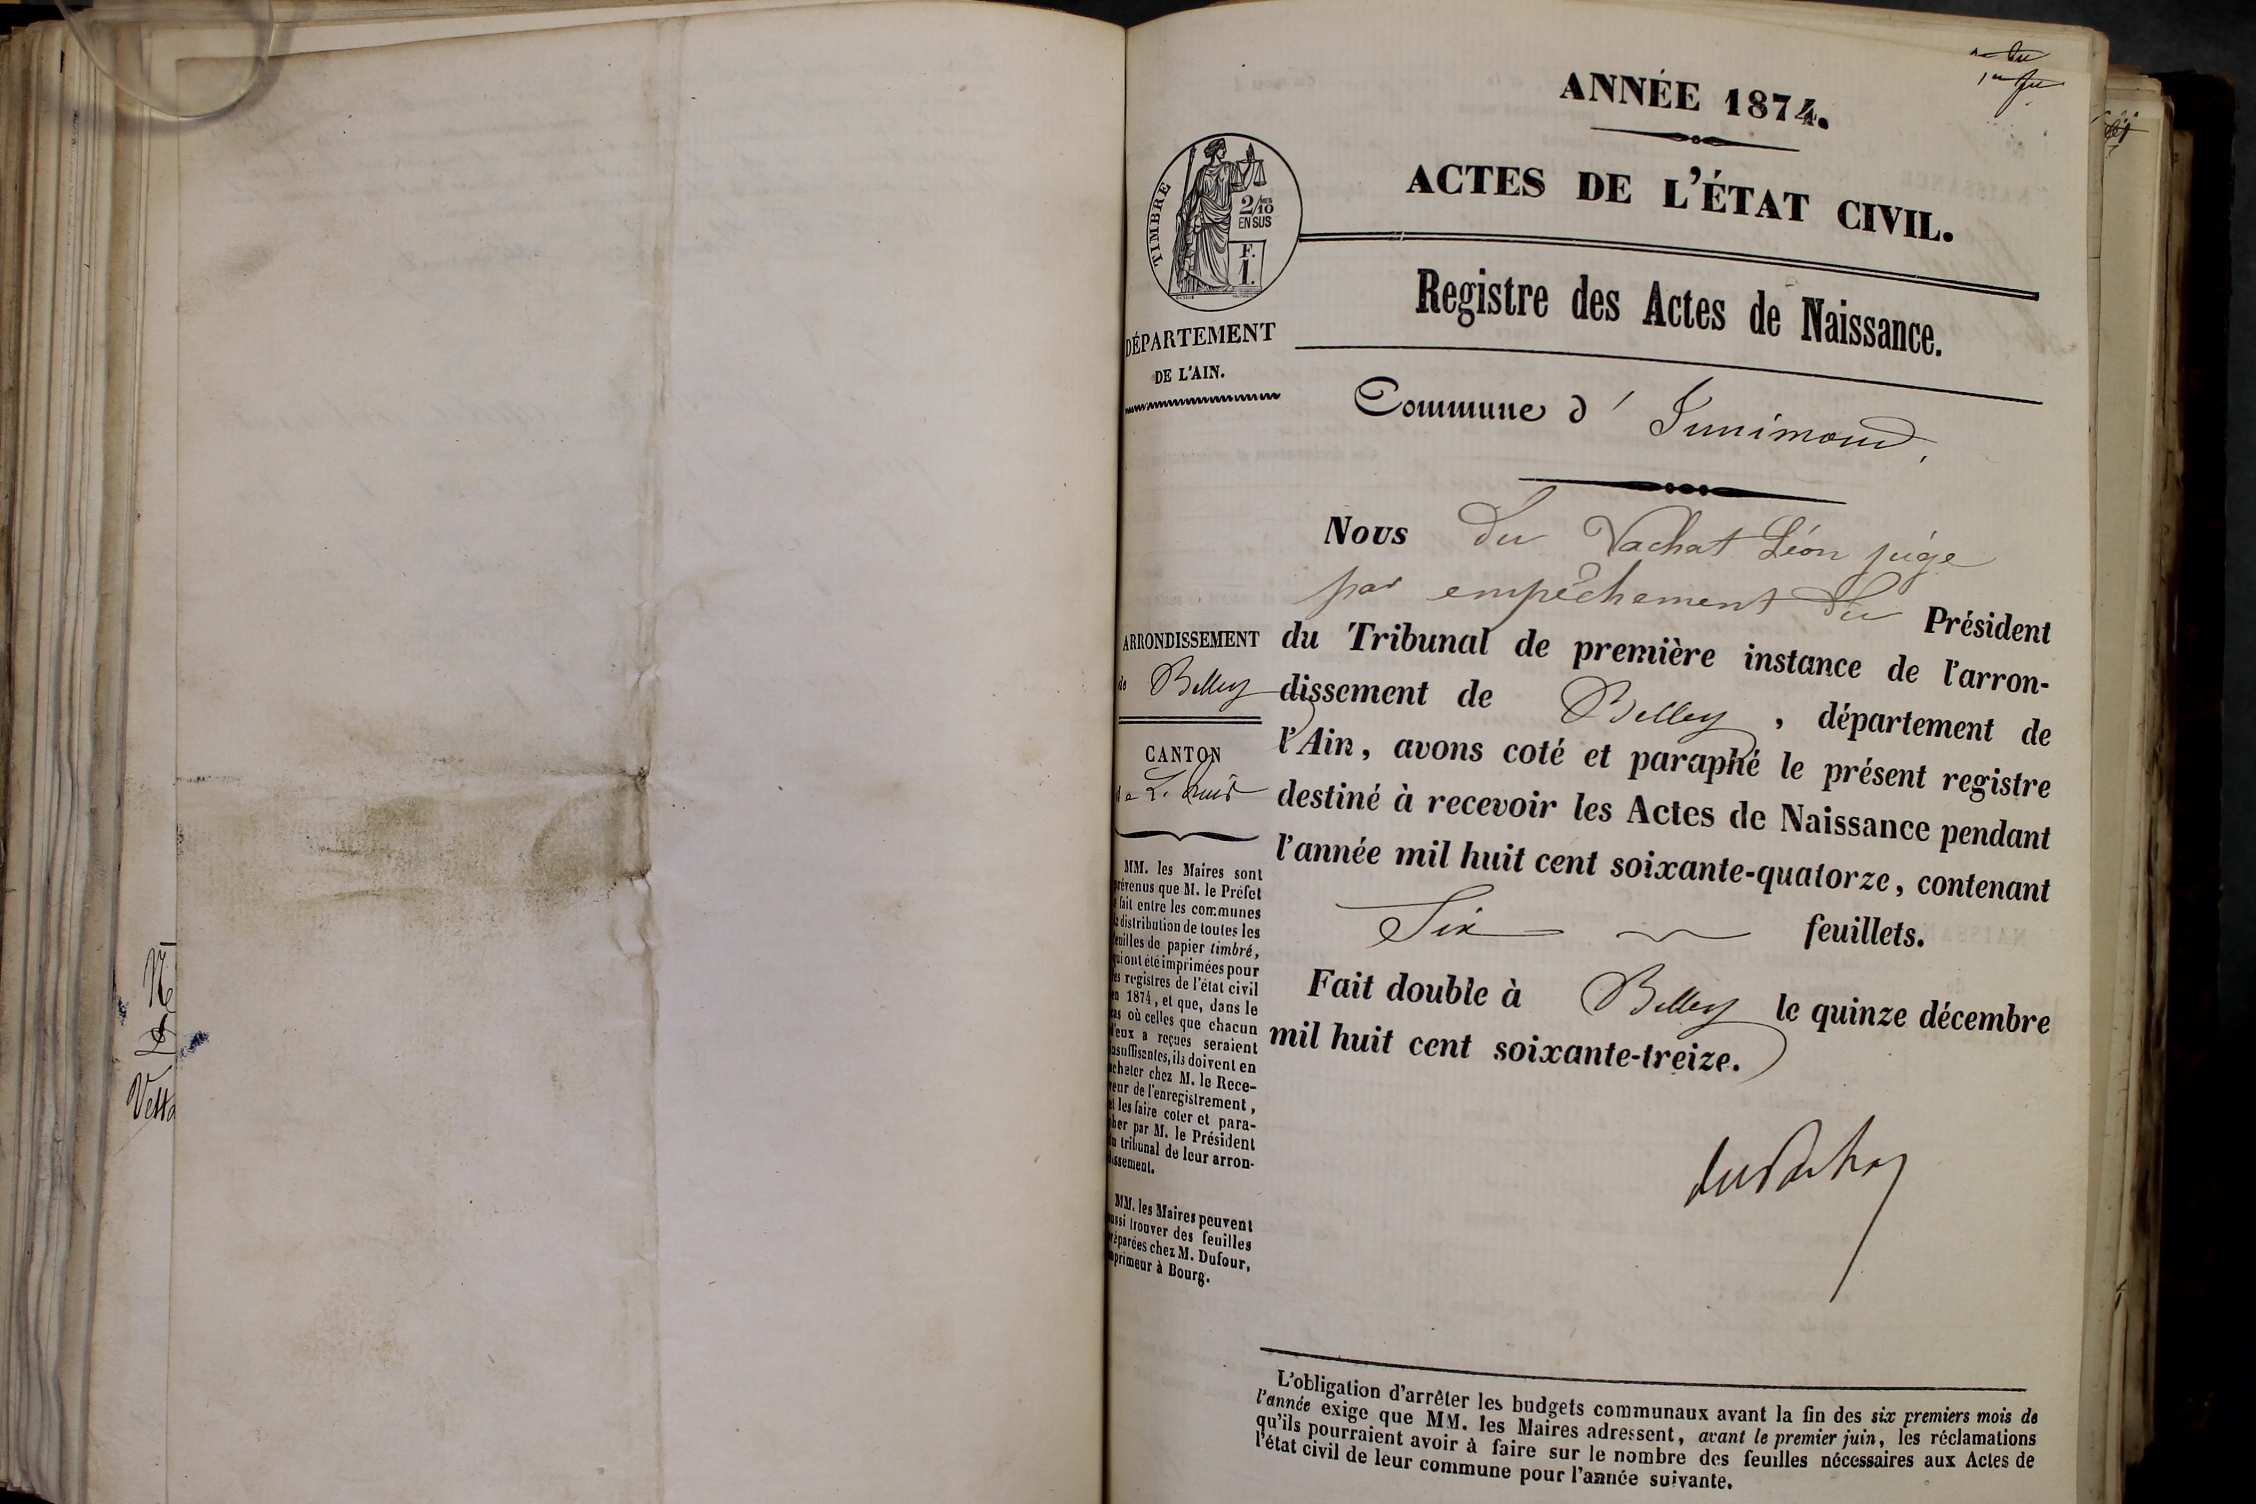 ANNÉE 1874.
ACTES DE L'ÉTAT CIVIL.
TIMBRE
2/10
EN SUS
F.
1.
Registre des Actes de Naissance.
DÉPARTEMENT
DE L'AIN.
Commune d'
Nous du Vachat Léon juge
par empêchement du Président
du Tribunal de première instance de l'arron-
dissement de Belley, département de
l'Ain, avons coté et paraphé le présent registre
destiné à recevoir les Actes de Naissance pendant
l'année mil huit cent soixante-quatorze, contenant
Six feuillets.
Fait double à Belley le quinze décembre
mil huit cent soixante-treize.
ARRONDISSEMENT
de Belley
CANTON
de
MM. les Maires sont
prévenus que M. le Préfet
a fait entre les communes
la distribution de toutes les
feuilles de papier timbré,
qui ont été imprimées pour
les registres de l'état civil
en 1874, et que, dans le
cas où celles que chacun
d'eux a reçues seraient
insuffisantes, ils doivent en
acheter chez M. le Rece-
veur de l'enregistrement,
et les faire coter et para-
pher par M. le Président
du tribunal de leur arron-
dissement.
MM. les Maires peuvent
aussi trouver des feuilles
préparées chez M. Dufour,
imprimeur à Bourg.
L'obligation d'arrêter les budgets communaux avant la fin des six premiers mois de
l'année exige que MM. les Maires adressent, avant le premier juin, les réclamations
qu'ils pourraient avoir à faire sur le nombre des feuilles nécessaires aux Actes de
l'état civil de leur commune pour l'année suivante.